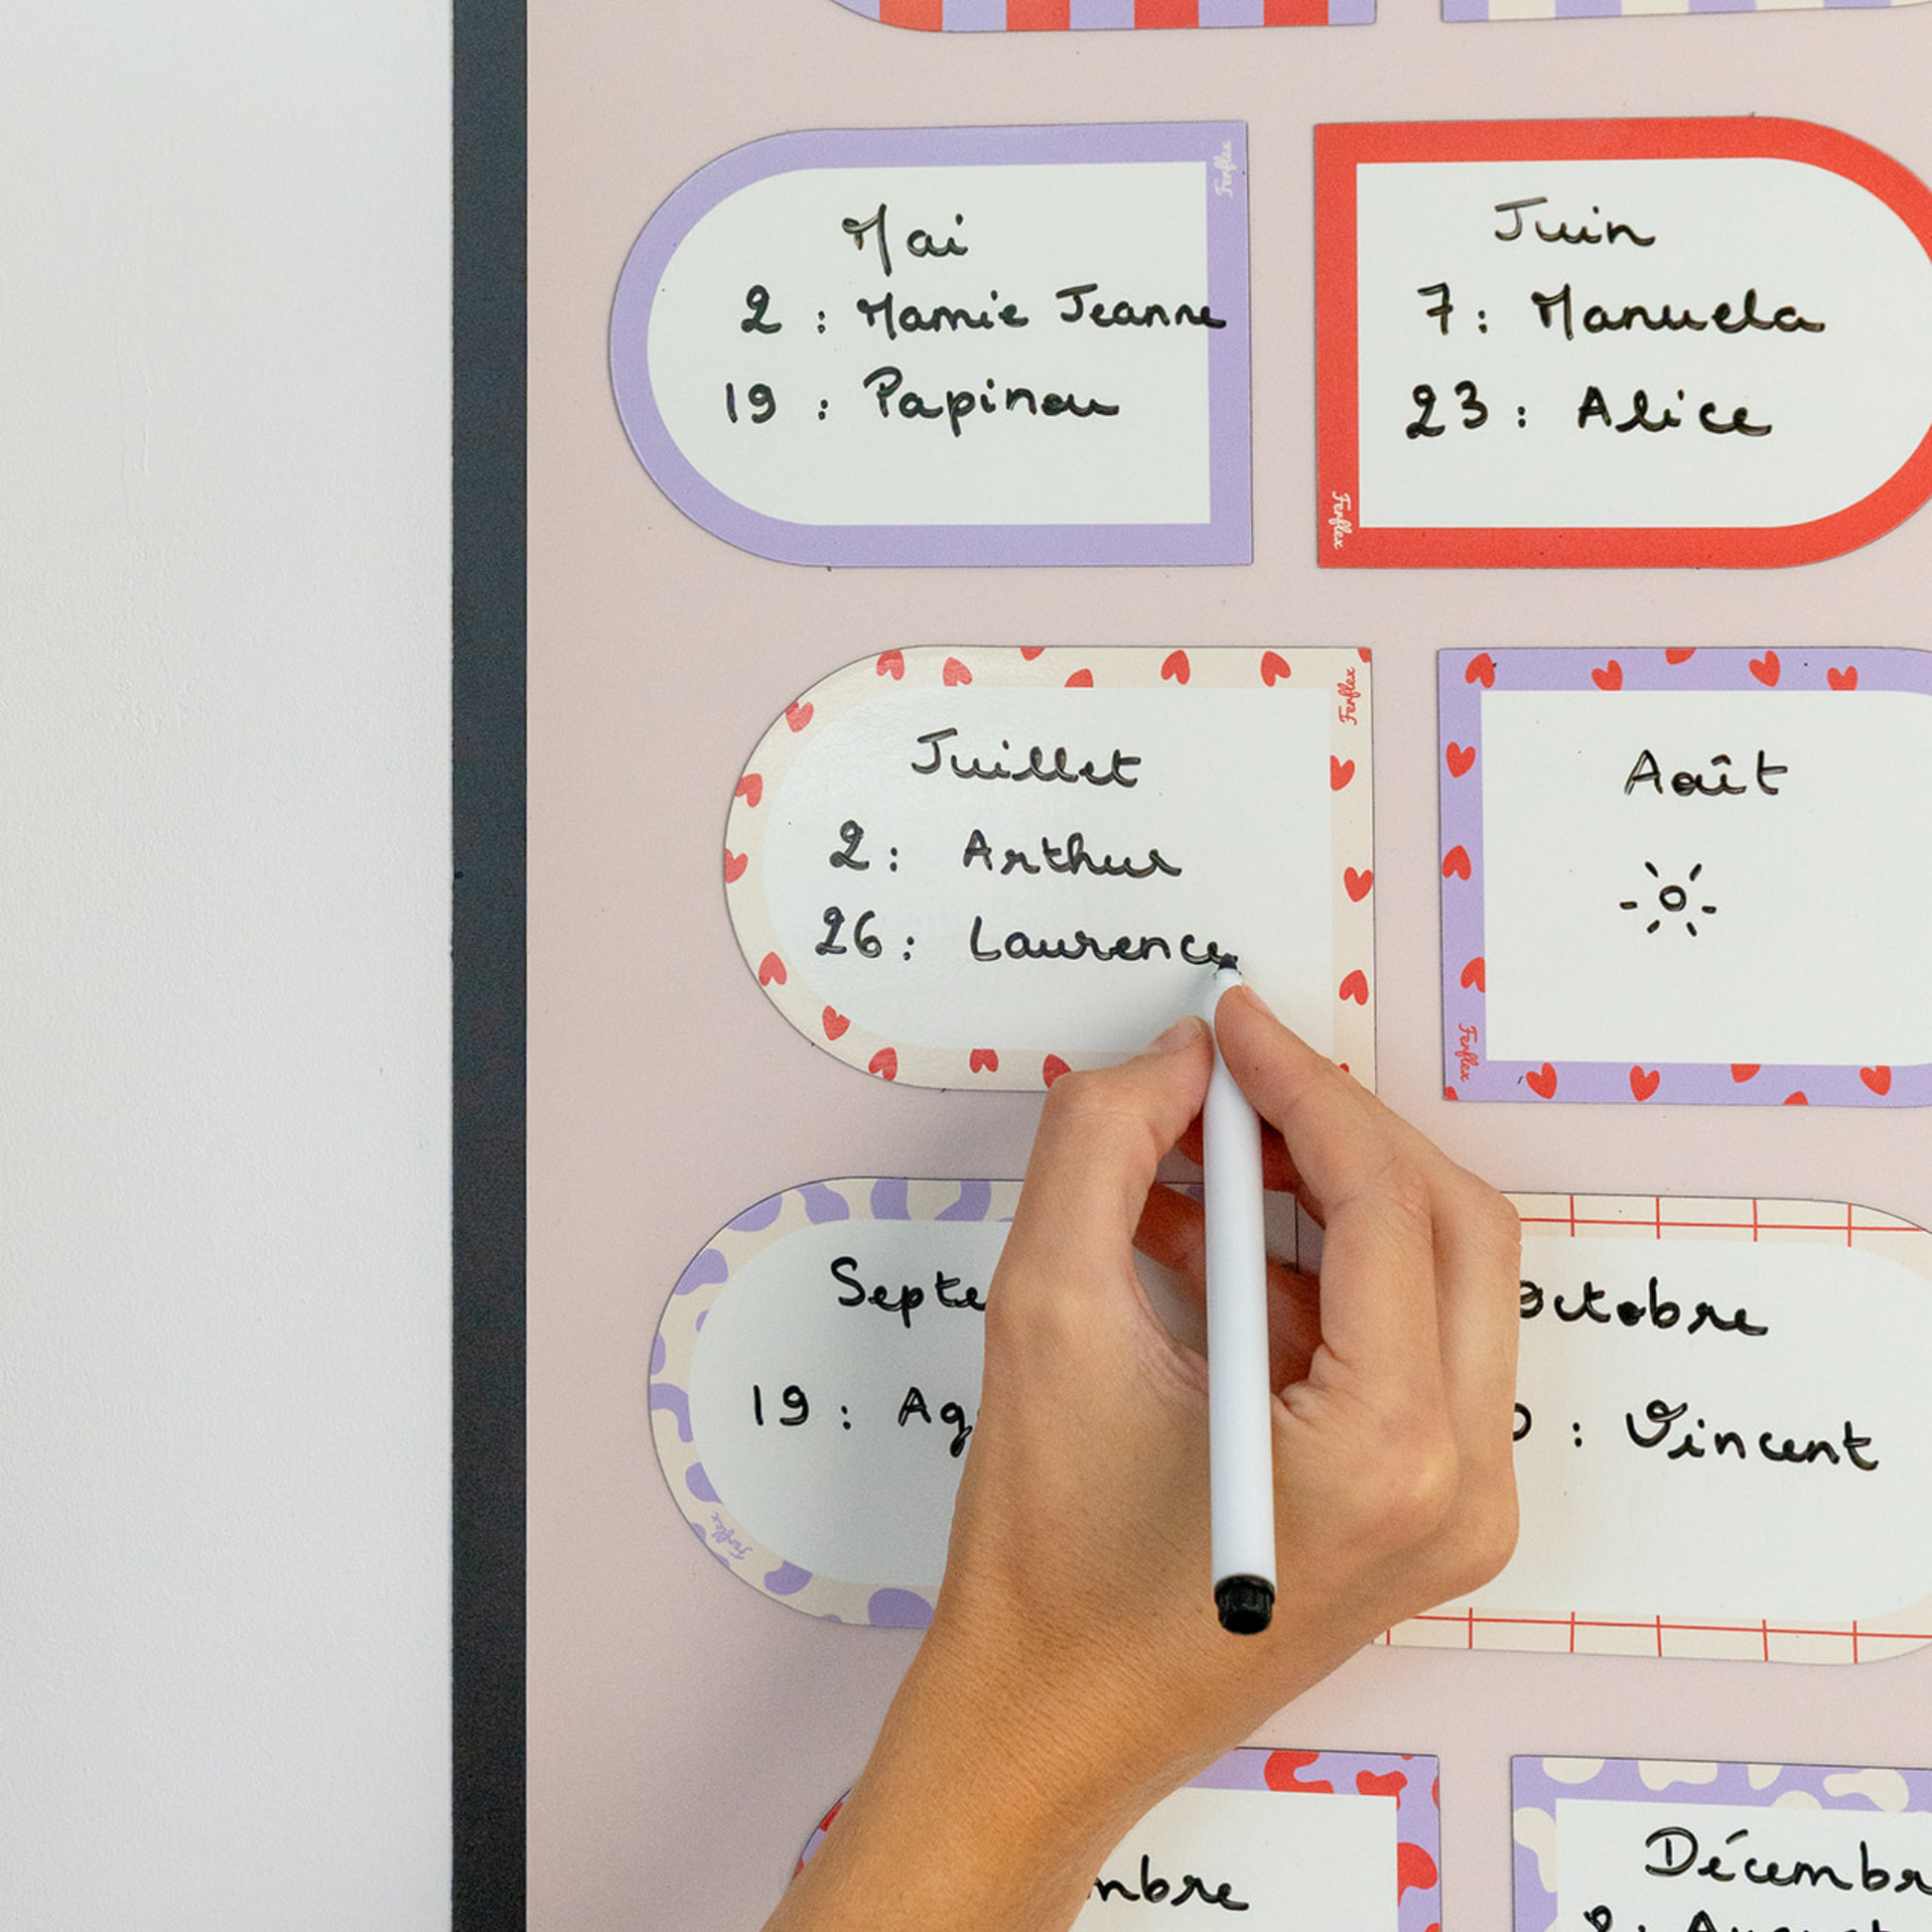 Ferflex
Mai
2 : Mamie Jeanne
19 : Papinou
Juin
7 : Manuela
23 : Alice
Ferflex
Ferflex
Juillet
2 : Arthur
26 : Laurence
Août
Ferflex
Septe
19 : Ag
Ferflex
Octobre
0 : Vincent
mbre
Décembr